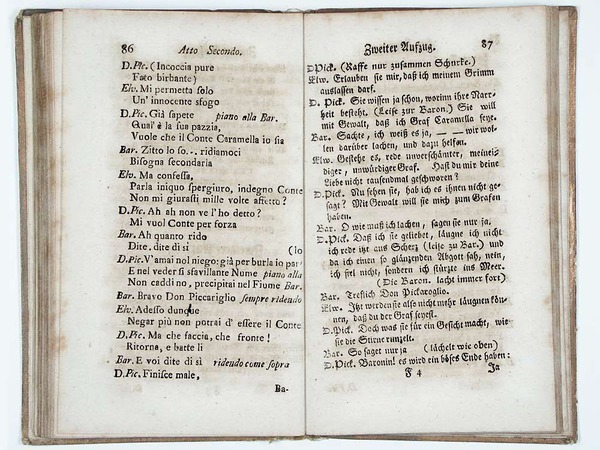 86 Atto Secondo.
D.Pic. (Incoccia pure
Fato birbante)
Elv. Mi permetta solo
Un' innocente sfogo
D.Pic. Già sapete piano alla Bar.
Qual'è la sua pazzia,
Vuole che il Conte Caramella io sia
Bar. Zitto lo so... ridiamoci
Bisogna secondarla
Elv. Ma confessa,
Parla iniquo spergiuro, indegno Conte
Non mi giurasti mille volte affetto?
D.Pic. Ah ah non ve l'ho detto?
Mi vuol Conte per forza
Bar. Ah quanto rido
Dite. dite di sì (lo
D.Pic. V'amai nol niego: già per burla io
E nel veder sì sfavillante Nume piano alla
Non caddi no, precipitai nel Fiume Bar.
Bar. Bravo Don Piccariglio sempre ridendo
Elv. Adesso dunque
Negar più non potrai d' essere il Conte
D.Pic. Ma che faccia, che fronte!
Ritorna, e batte lì
Bar. E voi dite di sì ridendo come sopra
D.Pic. Finisce male,
Ba-
Zweiter Aufzug. 87
D.Pick. (Raffe nur zusammen Schurke.)
Elw. Erlauben sie mir, daß ich meinem Grimm
auslassen darf.
D. Pick. Sie wissen ja schon, worinn ihre Narr-
heit besteht. (Leise zur Baron.) Sie will
mit Gewalt, daß ich Graf Caramella seye.
Bar. Sachte, ich weiß es ja, — — wir wol-
len darüber lachen, und dazu helfen.
Elw. Gestehe es, rede unverschämter, meinei-
diger, unwürdiger Graf. Hast du mir deine
Liebe nicht tausendmal geschworen?
D.Pick. Nu sehen sie, hab ich es ihnen nicht ge-
sagt? Mit Gewalt will sie mich zum Grafen
haben.
Bar. O wie muß ich lachen, sagen sie nur ja.
D.Pick. Daß ich sie geliebet, läugne ich nicht
ich rede itzt aus Scherz (leise zu Bar.) und
da ich einen so glänzenden Abgott sah, nein,
ich fiel nicht, sondern ich stürzte ins Meer.
(Die Baron. lacht immer fort)
Bar. Treflich Don Pickaroglio.
Elw. Itzt werden sie also nicht mehr läugnen kön-
nen, daß du der Graf seyest.
D.Pick. Doch was sie für ein Gesicht macht, wie
sie die Stirne runzelt.
Bar. So saget nur ja (lächelt wie oben)
D.Pick. Baronin! es wird ein böses Ende haben:
F 4 Ja